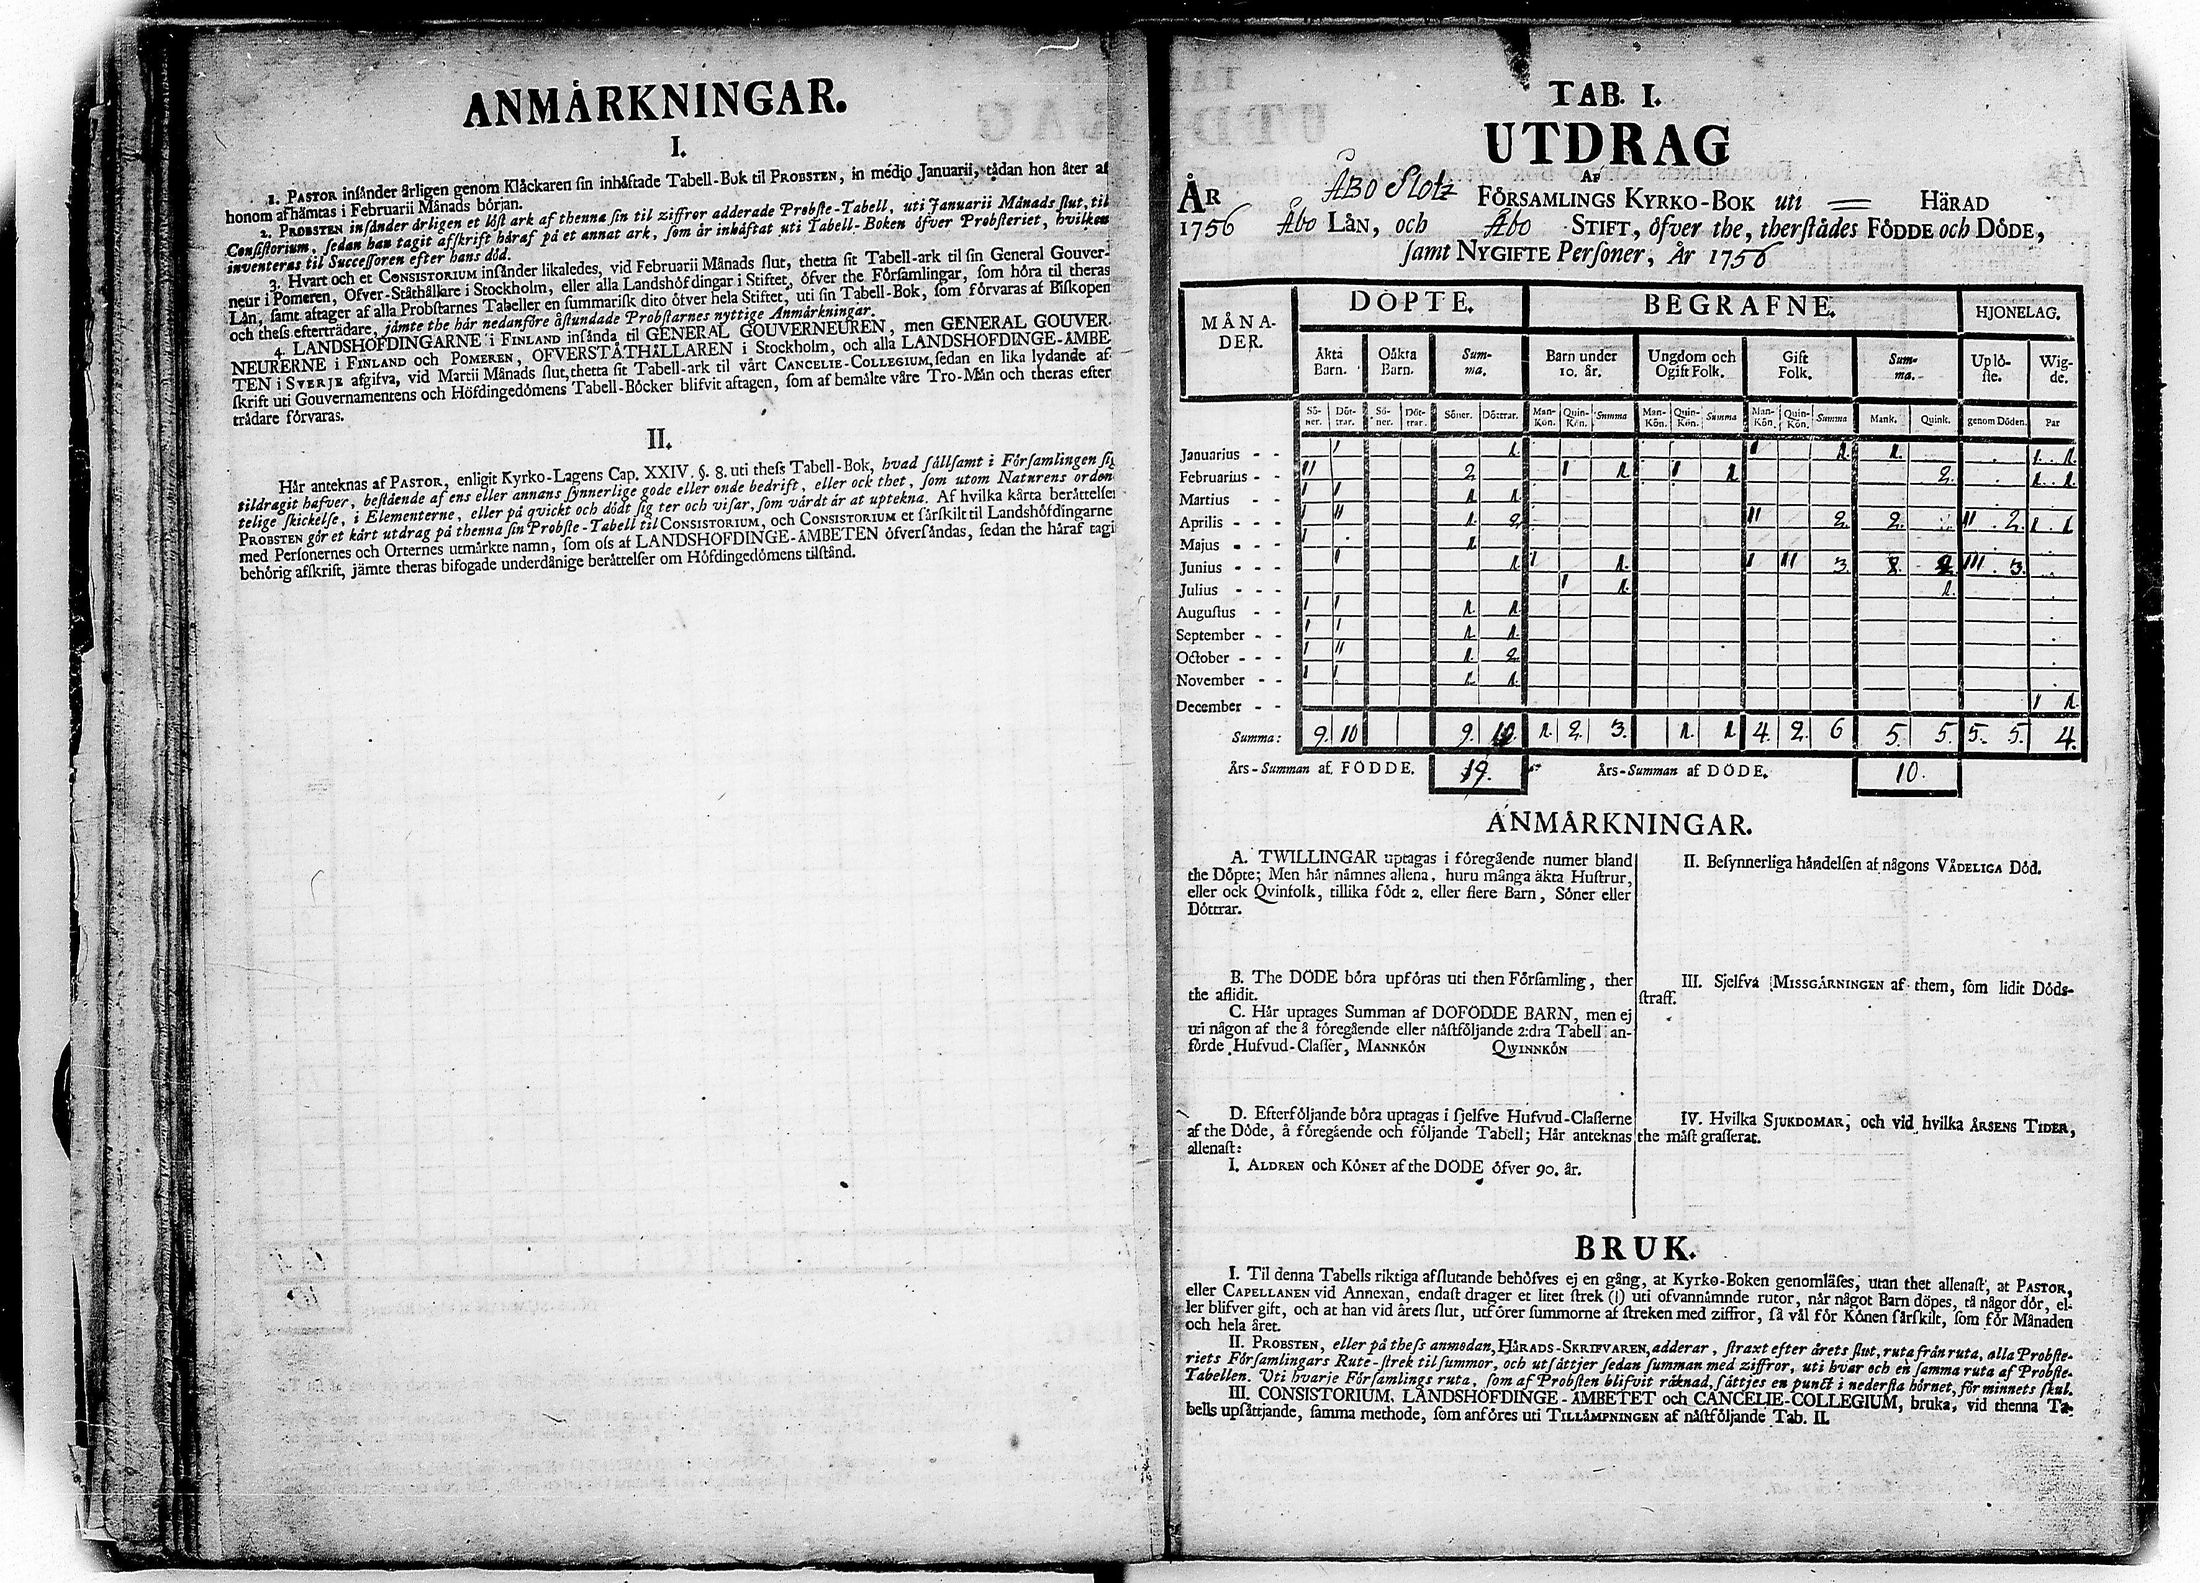 ANMÅRKNINGAR.
I.
1. PASTOR insånder årligen genom Klåckaren sin inhåftade Tabell-Bok til PROBSTEN, in médio Januarii, tådan hon åter af
honom afhåmtas i Februarii Månads början.
2. PROBSTEN insånder årligen et löst ark af thenna sin til ziffror adderade Probste-Tabell, uti Januarii Månads slut, til
Consistorium, sedan han tagit afskrift håraf på et annat ark, som år inhåftat uti Tabell-Boken öfver Probsteriet, hvilken
inventeras til Successoren efter hans död.
3. Hvart och et CONSISTORIUM insånder likaledes, vid Februarii Månads slut, thetta sit Tabell-ark til sin General Gouver-
neur i Pomeren, Öfver-Ståthållare i Stockholm, eller alla Landshöfdingar i Stiftet, öfver the Församlingar, som höra til theras
Lån, samt aftager af alla Probstarnes Tabeller en summarisk dito öfver hela Stiftet, uti sin Tabell-Bok, som förvaras af Biskopen
och thess efterträdare, jämte the hår nedanföre åstundade Probstarnes nyttige Anmårkningar.
4. LANDSHÖFDINGARNE i FINLAND insånda til GENERAL GOUVERNEUREN, men GENERAL GOUVER
NEURERNE i FINLAND och POMEREN, ÖFVERSTÅTHÅLLAREN i Stockholm, och alla LANDSHÖFDINGE-ÅMBE
TEN i SVERJE afgifva, vid Martii Månads slut, thetta sit Tabell-ark til vårt CANCELIE-COLLEGIUM, sedan en lika lydande af
skrift uti Gouvernamentens och Höfdingedömens Tabell-Böcker blifvit aftagen, som af bemålte våre Tro-Mån och theras efter
trådare förvaras.
II.
Hår anteknas af PASTOR, enligit Kyrko-Lagens Cap. XXIV. §. 8. uti thess Tabell-Bok, hvad sållsamt i Församlingen sig
tildragit hafver, bestående af ens eller annans synnerlige gode eller onde bedrift, eller ock thet, som utom Naturens orden
telige skickelse, i Elementerne, eller på qvickt och dödt sig ter och visar, som vårdt år at uptekna. Af hvilka kårta beråttelser
PROBSTEN gör et kårt utdrag på thenna sin Probste-Tabell til CONSISTORIUM, och CONSISTORIUM et sårskilt til Landshöfdingarne
med Personernes och Orternes utmårkte namn, som oss af LANDSHÖFDINGE-ÅMBETEN öfversåndas, sedan the håraf tagi
behörig afskrift, jämte theras bifogade underdånige beråttelser om Höfdingedömens tilstånd.
TAB. I.
UTDRAG
AF
ÅR Åbo Slotz FÖRSAMLINGS KYRKO-BOK uti = HÄRAD
1756 Åbo LÅN, och Åbo STIFT, öfver the, therstådes FÖDDE och DÖDE,
samt NYGIFTE Personer, År 1756
MÅNA-DER. DÖPTE. BEGRAFNE. HJONELAG.
Åkta Barn. Oåkta Barn. Sum-ma. Barn under 10. år. Ungdom och Ogift Folk. Gift Folk. Sum-ma. Uplö-ste. Wig-de.
Sö-ner. Döt-trar. Sö-ner. Döt-trar. Söner. Döttrar. Man-Kön. Quin-Kön. Summa Man-Kön. Quin-Kön. Summa Man-Kön. Quin-Kön. Summa Mank. Quink. genom Döden. Par
Januarius - - ı 1. ı 1. 1. 1. 1.
Februarius - - ıı 2. ı 1. ı 1. 2. 1. 1.
Martius - - ı ı 1. 1.
Aprilis - - - ı ıı 1. 2. ıı 2. 2. ıı 2. 1. 1.
Majus - - - ı 1.
Junius - - - ı 1. ı 1. ı ıı 3. 2. ııı 3.
Julius - - ı 1. 1.
Augustus - - ı ı 1. 1.
September - - ı ı 1. 1.
October - - - ı ıı 1. 2.
November - - ı ı 1. 1.
December - - ı 1.
Summa: 9. 10 9. 10. 1. 2. 3. 1. 1 4. 2. 6 5. 5. 5. 5. 4.
Års-Summan af FÖDDE. 19. Års-Summan af DÖDE. 10.
ANMÅRKNINGAR.
A. TWILLINGAR uptagas i föregående numer bland
the Döpte; Men hår nåmnes allena, huru många äkta Hustrur,
eller ock Qvinfolk, tillika födt 2. eller flere Barn, Söner eller
Döttrar.
B. The DÖDE böra upföras uti then Församling, ther
the aflidit.
C. Hår uptages Summan af DÖFÖDDE BARN, men ej
uti någon af the å föregående eller nåstföljande 2:dra Tabell an-
förde Hufvud-Classer, MANNKÖN QWINNKÖN
D. Efterföljande böra uptagas i sjelfve Hufvud-Classerne
af the Döde, å föregående och följande Tabell; Hår anteknas
allenast:
I. ÅLDREN och KÖNET af the DÖDE öfver 90. år.
II. Besynnerliga håndelsen af någons VÅDELIGA Död.
III. Sjelfva MISSGÅRNINGEN af them, som lidit Döds-
straff.
IV. Hvilka SJUKDOMAR, och vid hvilka ÅRSENS TIDER,
the måst grasserat.
BRUK.
I. Til denna Tabells riktiga afslutande behöfves ej en gång, at Kyrko-Boken genomläses, utan thet allenast, at PASTOR,
eller CAPELLANEN vid Annexan, endast drager et litet strek (ı) uti ofvannåmnde rutor, når något Barn döpes, tå någor dör, el-
ler blifver gift, och at han vid årets slut, utförer summorne af streken med ziffror, så vål för Könen sårskilt, som för Månaden
och hela året.
II. PROBSTEN, eller på thess anmodan, HÅRADS-SKRIFVAREN, adderar, straxt efter årets slut, ruta från ruta, alla Probste-
riets Församlingars Rute-strek til summor, och utsåttjer sedan summan med ziffror, uti hvar och en samma ruta af Probste-
Tabellen. Uti hvarje Församlings ruta, som af Probsten blifvit råknad, såttjes en punct i nedersta hörnet, för minnets skul.
III. CONSISTORIUM, LANDSHÖFDINGE-ÅMBETET och CANCELIE-COLLEGIUM, bruka, vid thenna Ta-
bells upsåttjande, samma methode, som anföres uti TILLÅMPNINGEN af nåstföljande Tab. II.